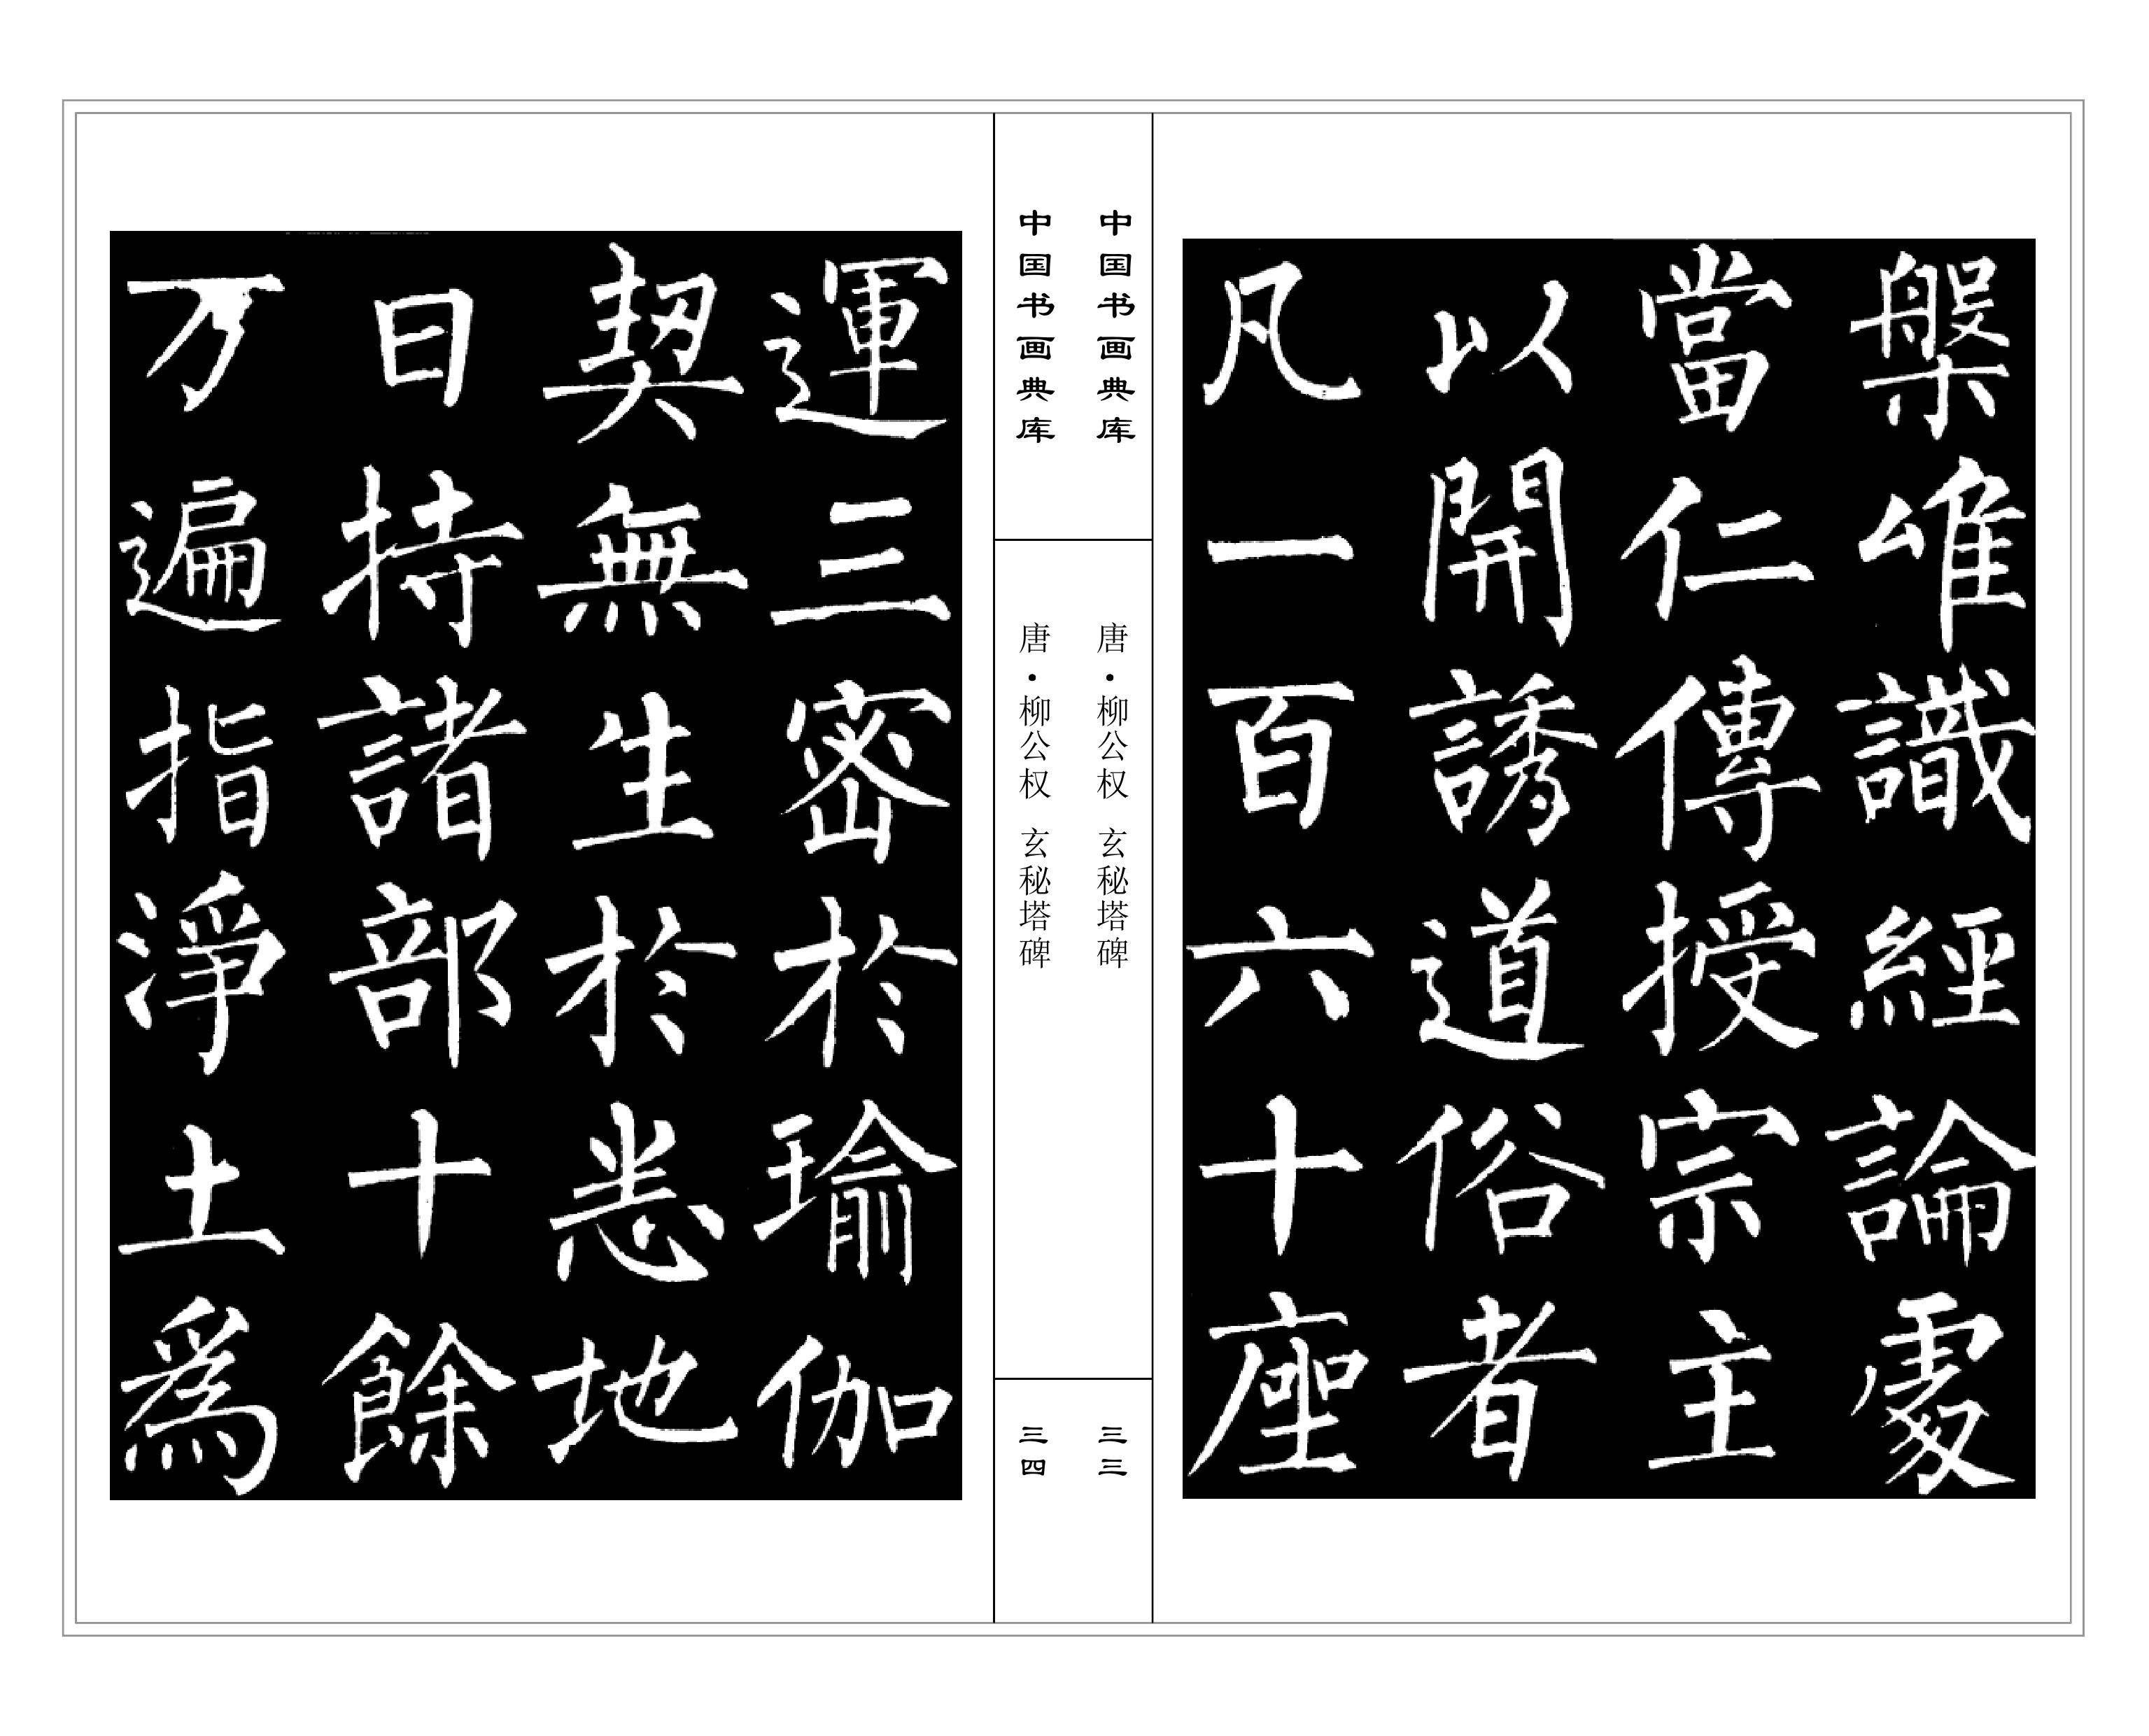 槃唯識經論處
當仁傳授宗主
以開誘道俗者
凡一百六十座
中国书画典库
唐·柳公权 玄秘塔碑
三三
中国书画典库
唐·柳公权 玄秘塔碑
三四
運三密於瑜伽
契無生於悉地
日持諸部十餘
万遍指淨土爲